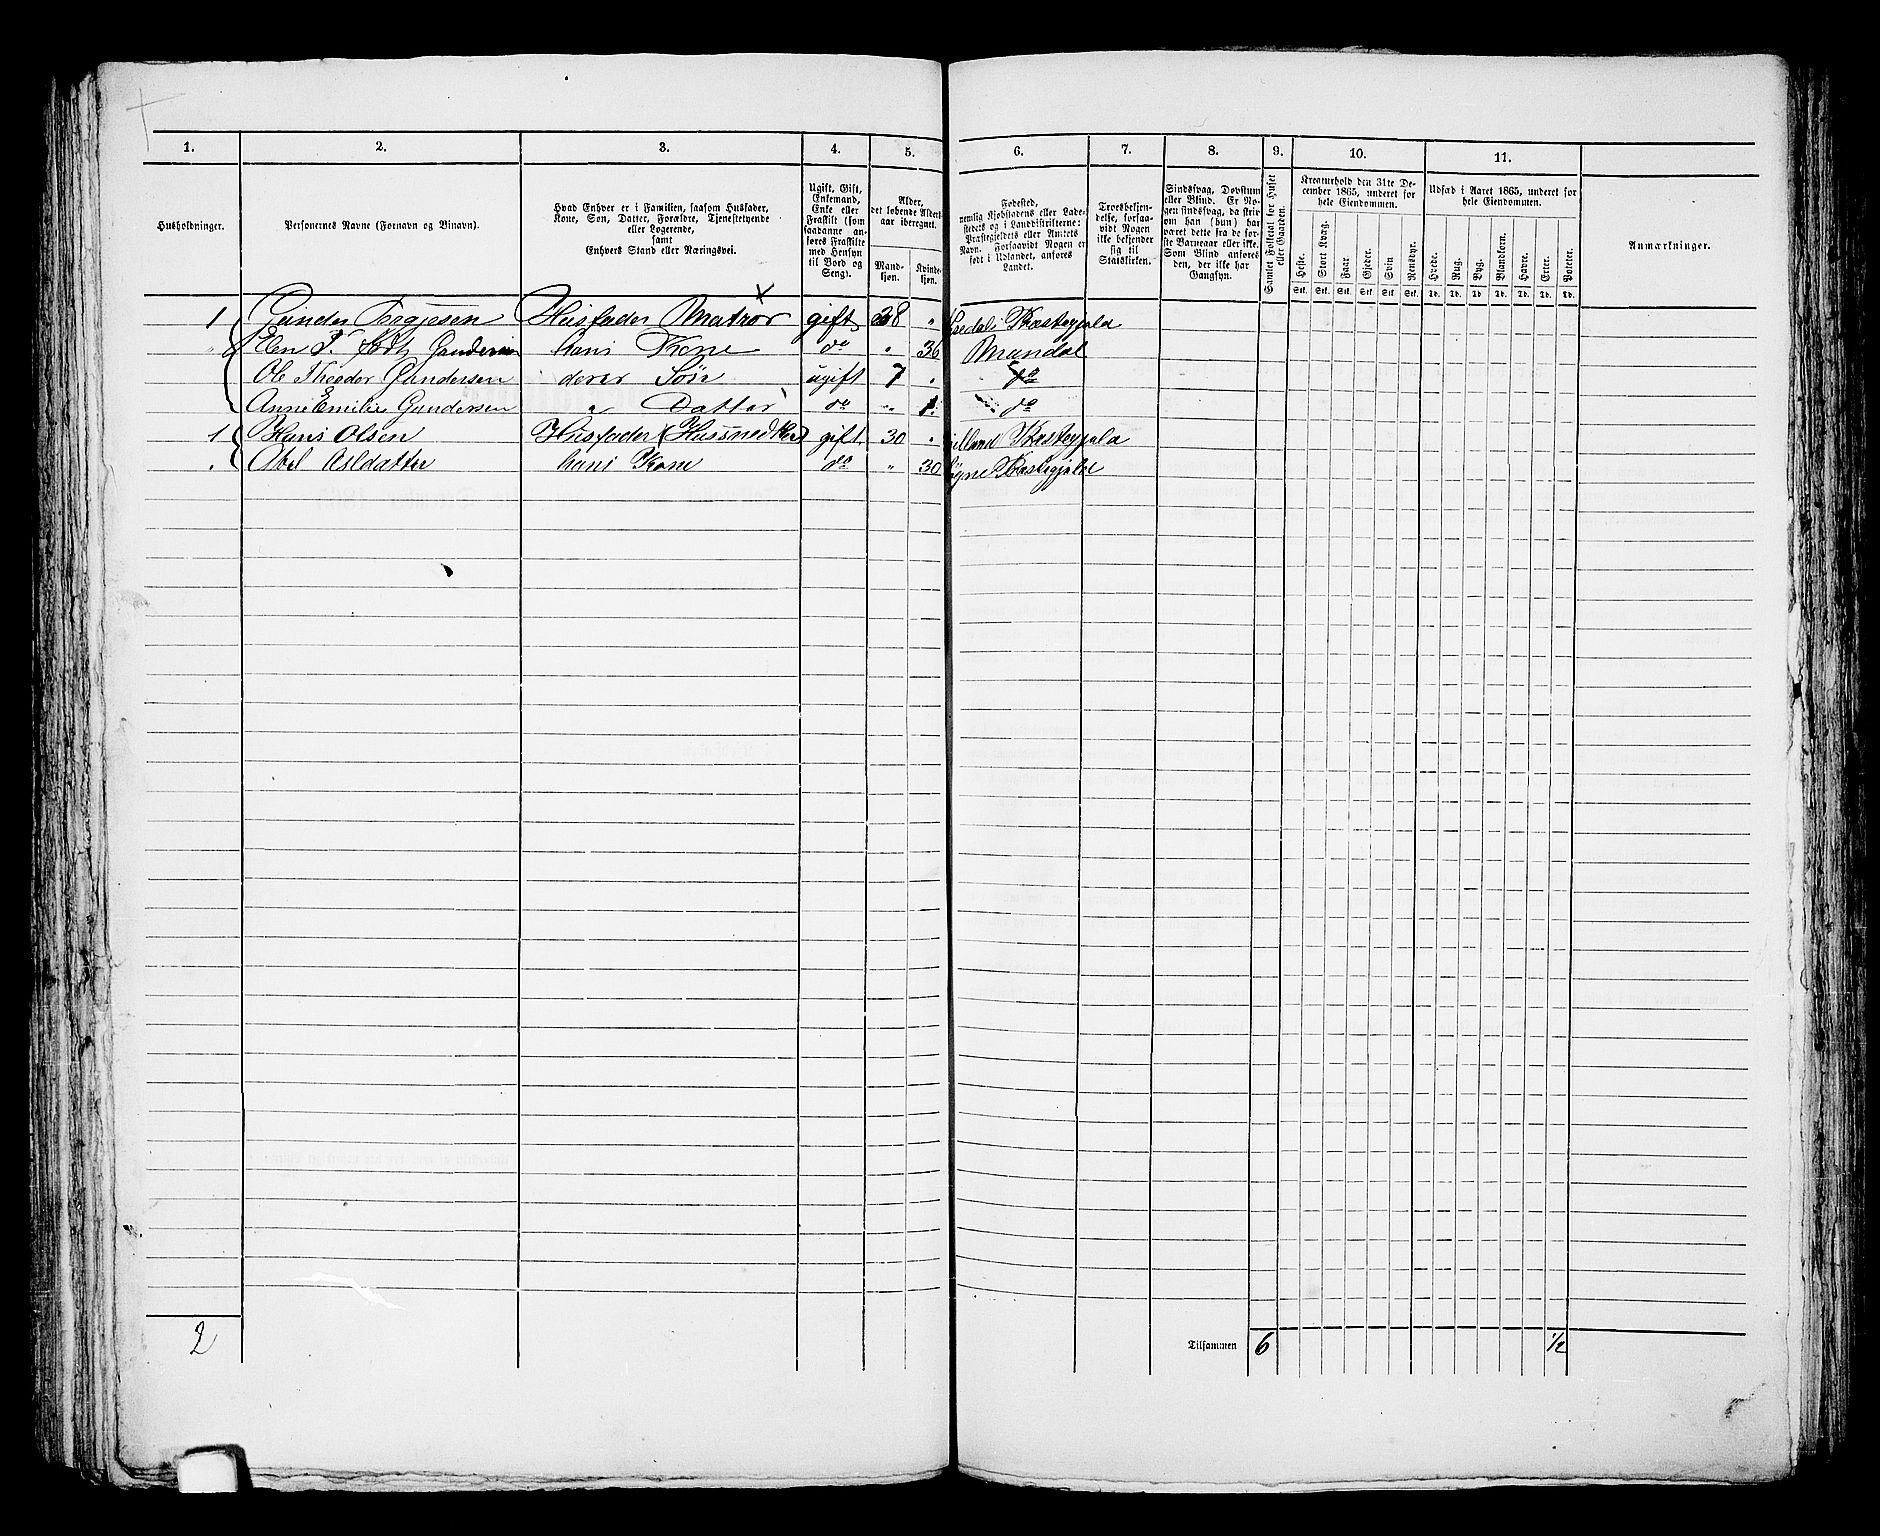 1. 2. 3. 4. 5. 6. 7. 8. 9. 10. 11.
Husholdninger.
Personernes Navne (Fornavn og Binavn).
Hvad Enhver er i Familien, saasom Husfader,
Kone, Søn, Datter, Forældre, Tjenestetyende
eller Logerende,
samt
Enhvers Stand eller Næringsvei.
Ugift, Gift,
Enkemand,
Enke eller
Fraskilt (som
saadanne an-
føres Fraskilte
med Hensyn
til Bord og
Seng).
Alder,
det løbende Alders-
aar iberegnet.
Mand-
kjøn.
Kvinde-
kjøn.
Fødested,
nemlig Kjøbstadens eller Lade-
stedets og i Landdistrikterne:
Præstegjeldets eller Amtets
Navn. Forsaavidt Nogen er
født i Udlandet, anføres
Landet.
Troesbekjen-
delse, forsaa-
vidt Nogen
ikke bekjender
sig til
Statskirken.
Sindssvag, Døvstum
eller Blind. Er No-
gen sindssvag, da skriv
om han (hun) har
været dette fra de før-
ste Barneaar eller ikke.
Som Blind anføres
den, der ikke har
Gangsyn.
Samlet Folketal for Huset
eller Gaarden.
Kreaturhold den 31te De-
cember 1865, underet for
hele Eiendommen.
Heste. Stort Kvæg. Faar. Gjeder. Svin Rensdyr.
Stk. Stk. Stk. Stk. Stk. Stk.
Udsæd i Aaret 1865, underet for
hele Eiendommen.
Hvede. Rug. Byg. Blandkorn. Havre. Erter. Poteter.
Td. Td. Td Td. Td. Td. Td.
Anmærkninger.
1 Gunder Tergjesen Husfader Matros gift 38 " Præstegjeld
" Elen Gundersen hans Kone do " 36 Mandal
Ole Theodor Gundersen deres Søn ugift 7 " do
Anne Emilie Gundersen " Datter do " 1 do
1 Hans Olsen Husfader gift 30 " Præstegjeld
" Abel Asldatter hans Kone do " 30 Præstegjeld
2
Tilsammen 6 1/2